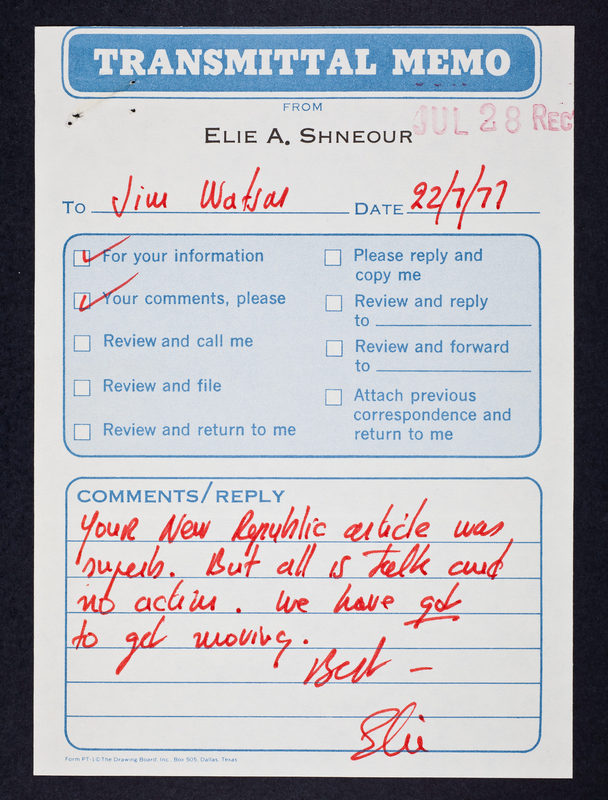 TRANSMITTAL MEMO
FROM
ELIE A. SHNEOUR
JUL 28 REC'
TO Jim Watson DATE 22/7/77
For your information
Your comments, please
Review and call me
Review and file
Review and return to me
Please reply and
copy me
Review and reply
to
Review and forward
to
Attach previous
correspondence and
return to me
COMMENTS/REPLY
Your New Republic article was
superb. But all is talk and
no action. We have got
to get moving.
Best –
Elie
Form PT-1 © The Drawing Board, Inc., Box 505, Dallas, Texas